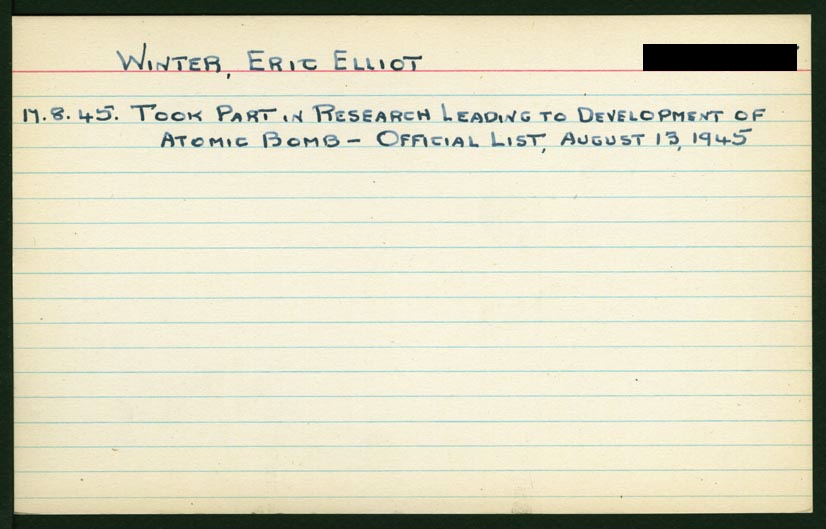 WINTER, ERIC ELLIOT
17.8.45. TOOK PART IN RESEARCH LEADING TO DEVELOPMENT OF
ATOMIC BOMB - OFFICIAL LIST, AUGUST 13, 1945